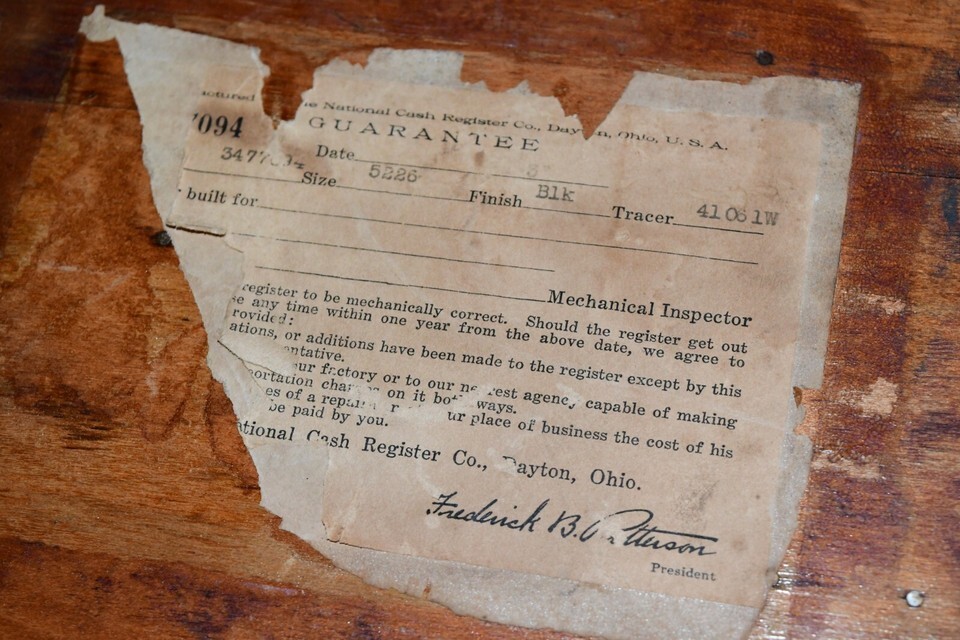 National Cash Register Co., Dayton, Ohio, U. S. A.
GUARANTEE
Date
Size 5226 Finish Blk Tracer
built for
Mechanical Inspector
register to be mechanically correct. Should the register get out
any time within one year from the above date, we agree to
rovided:
ations, or additions have been made to the register except by this
entative.
ur factory or to our nearest agency capable of making
portation on it both ways.
es of a place of business the cost of his
be paid by you.
ational Cash Register Co., Dayton, Ohio.
Frederick B. Patterson
President